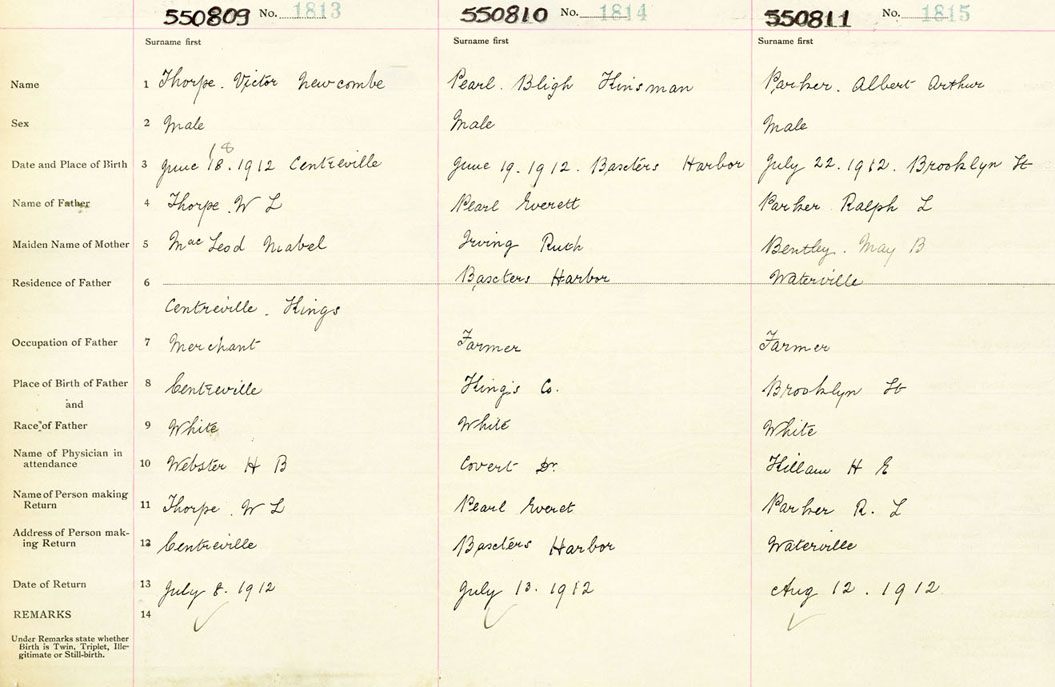 550809 No. 1813 550810 No. 1814 550811 No. 1815
Surname first Surname first Surname first
Name 1 Thorpe. Victor Newcombe Pearl. Bligh Kinsman Parker. Albert Arthur
Sex 2 Male Male Male
18
Date and Place of Birth 3 June 18. 1912 Centreville June 19. 1912. Baxters Harbor July 22. 1912. Brooklyn St
Name of Father 4 Thorpe. W L Pearl Everett Parker Ralph L
Maiden Name of Mother 5 MacLeod Mabel Irving Ruth Bentley. May B
Residence of Father 6 Baxters Harbor Waterville
Centreville. Kings
Occupation of Father 7 Merchant Farmer Farmer
Place of Birth of Father 8 Centreville King's Co. Brooklyn St
and
Race of Father 9 White White White
Name of Physician in
attendance 10 Webster H B Covert Dr. Killam H E
Name of Person making
Return 11 Thorpe. W L Pearl Everet Parker R. L
Address of Person mak-
ing Return 12 Centreville Baxters Harbor Waterville
Date of Return 13 July 8. 1912 July 13. 1912 Aug 12. 1912
REMARKS 14
Under Remarks state whether
Birth is Twin, Triplet, Ille-
gitimate or Still-birth.